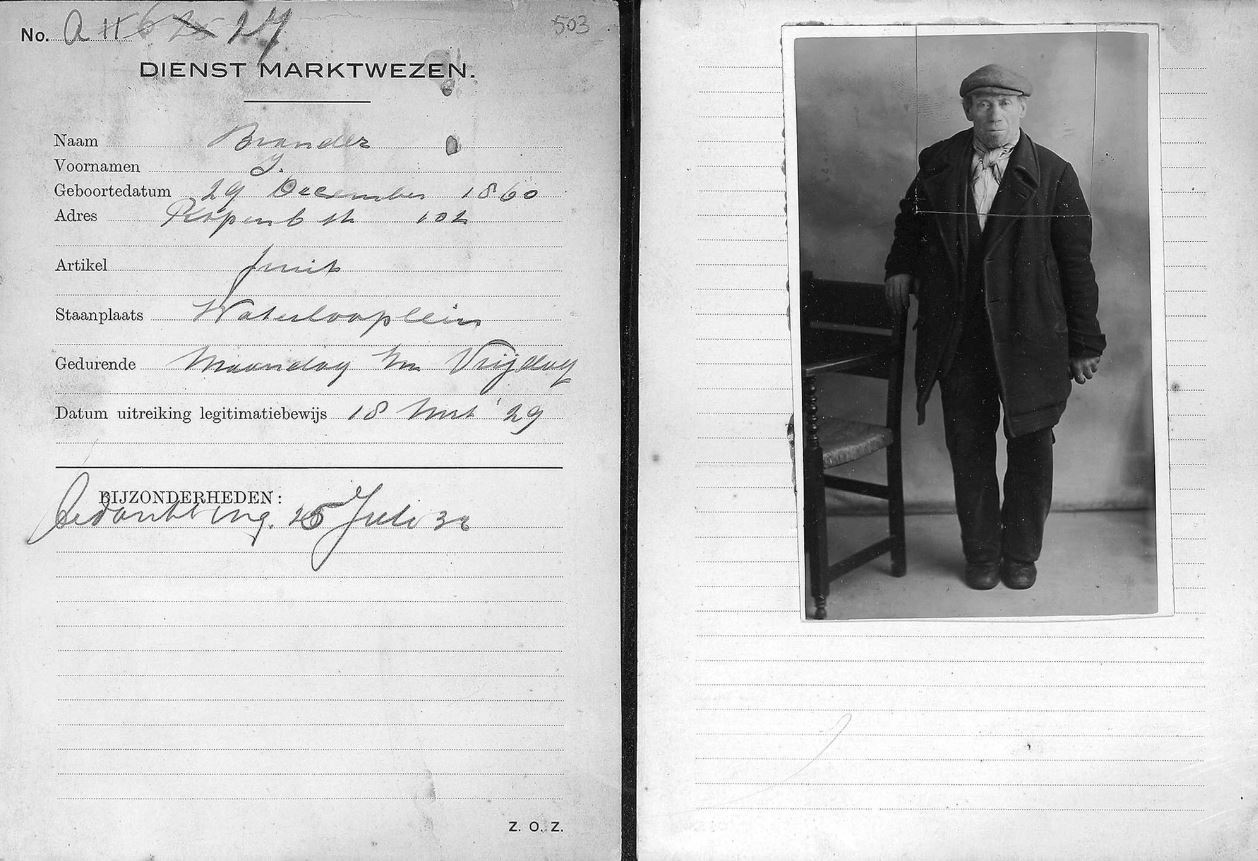 No. A 27
503
DIENST MARKTWEZEN.
Naam Brander
Voornamen J.
Geboortedatum 29 December 1860
Adres 102
Artikel fruit
Staanplaats Waterlooplein
Gedurende Maandag t/m Vrijdag
Datum uitreiking legitimatiebewijs 18 Mrt '29
BIJZONDERHEDEN:
Bedankt ing. 25 Juli
Z. O. Z.